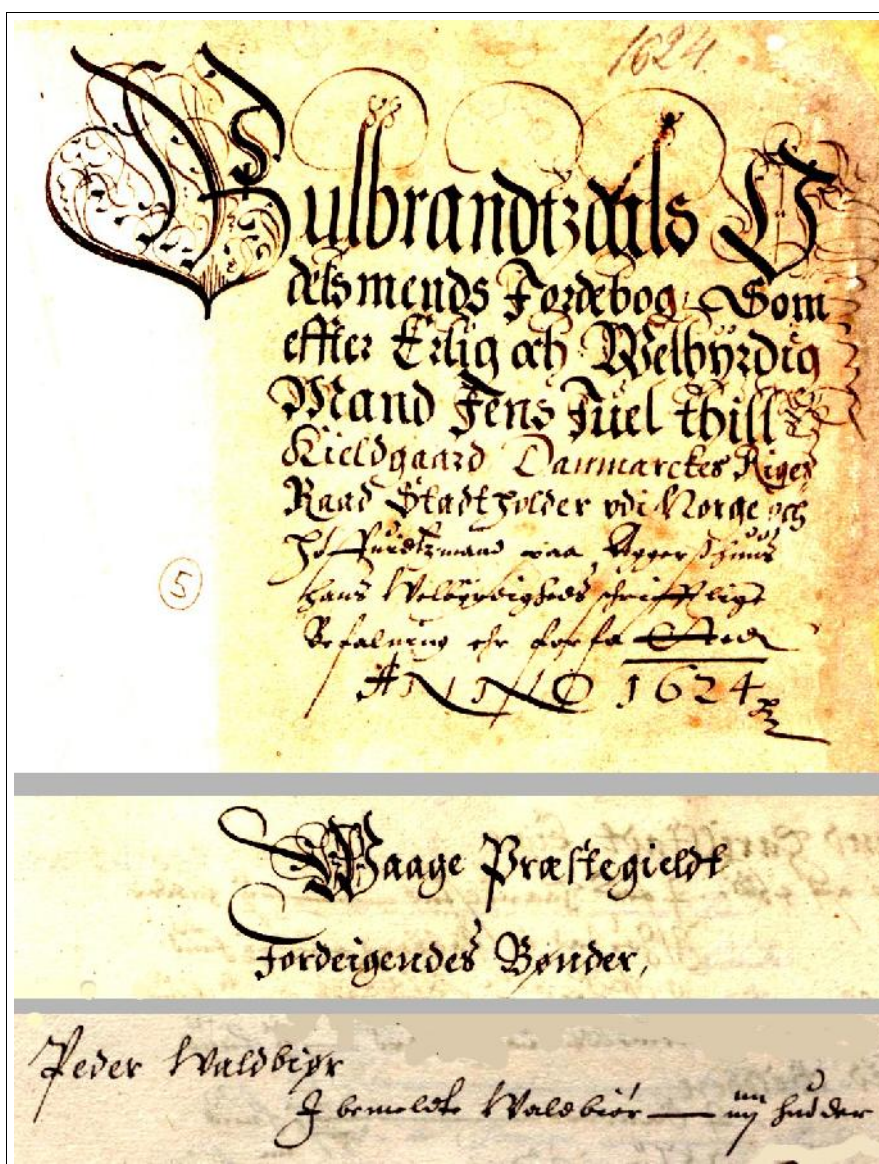 1624.
Gulbrandtzdals O
delsmends Jordebog Som
effter Erlig och Welbyrdig
Mand Jens Juel thill
Kieldgaard Danmarckes Riges
Raad Stadtholder vdi Norge och
Höffuidtzmand paa Aggershuus
hans Welbyrdigheds schrifftlige
Befalning ehr forfa
5
ANNO 1624
Waage Præstegieldt
Jordeigendes Bønder,
Peder Waldbiør
J bemeldte Waldbiør — huder